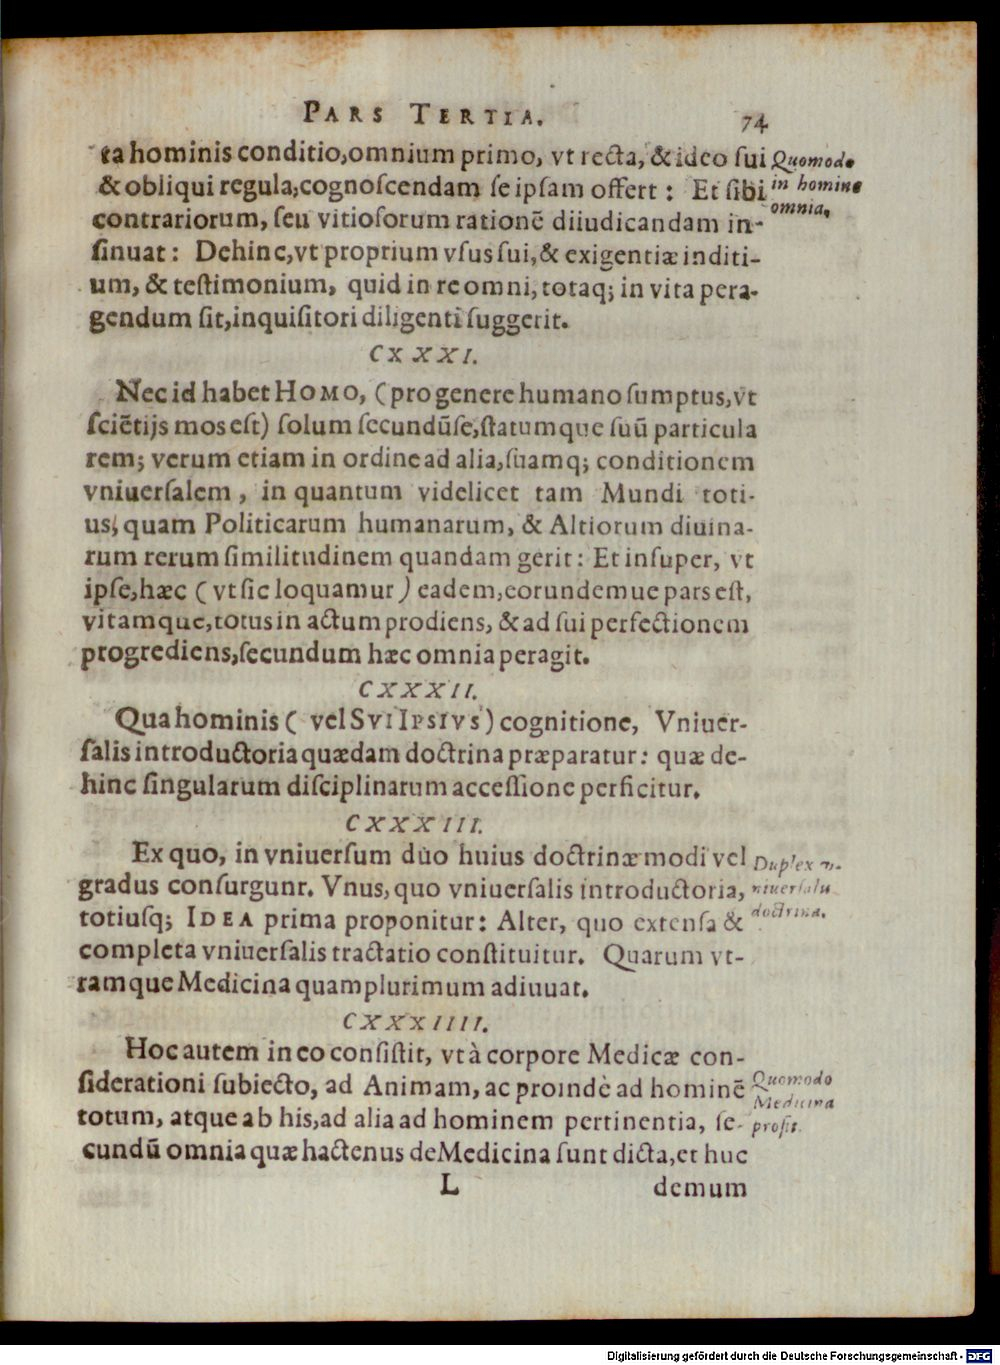 PARS TERTIA. 74
ta hominis conditio, omnium primo, vt recta, & ideo sui
& obliqui regula, cognoscendam se ipsam offert: Et sibi
contrariorum, seu vitiosorum rationē diiudicandam in-
sinuat: Dehinc, vt proprium vsus sui, & exigentiæ inditi-
um, & testimonium, quid in re omni, totaq; in vita pera-
gendum sit, inquisitori diligenti suggerit.
Quomodo
in homine
omnia.
CXXXI.
Nec id habet HOMO, (pro genere humano sumptus, vt
sciētijs mos est) solum secundū se, statumque suū particula
rem; verum etiam in ordine ad alia, suamq; conditionem
vniuersalem, in quantum videlicet tam Mundi toti-
us, quam Politicarum humanarum, & Altiorum diuina-
rum rerum similitudinem quandam gerit: Et insuper, vt
ipse, hæc (vt sic loquamur) eadem, eorundemue pars est,
vitamque, totus in actum prodiens, & ad sui perfectionem
progrediens, secundum hæc omnia peragit.
CXXXII.
Qua hominis (vel SVI IPSIVS) cognitione, Vniuer-
salis introductoria quædam doctrina præparatur: quæ de-
hinc singularum disciplinarum accessione perficitur.
CXXXIII.
Ex quo, in vniuersum duo huius doctrinæ modi vel
gradus consurgunr. Vnus, quo vniuersalis introductoria,
totiusq; IDEA prima proponitur: Alter, quo extensa &
completa vniuersalis tractatio constituitur. Quarum vt-
ramque Medicina quamplurimum adiuuat.
Duplex v-
niuersalis
doctrina.
CXXXIIII.
Hoc autem in eo consistit, vt à corpore Medicæ con-
siderationi subiecto, ad Animam, ac proindè ad hominē
totum, atque ab his, ad alia ad hominem pertinentia, se-
cundū omnia quæ hactenus de Medicina sunt dicta, et huc
Quomodo
Medicina
prosit.
L demum
Digitalisierung gefördert durch die Deutsche Forschungsgemeinschaft - DFG